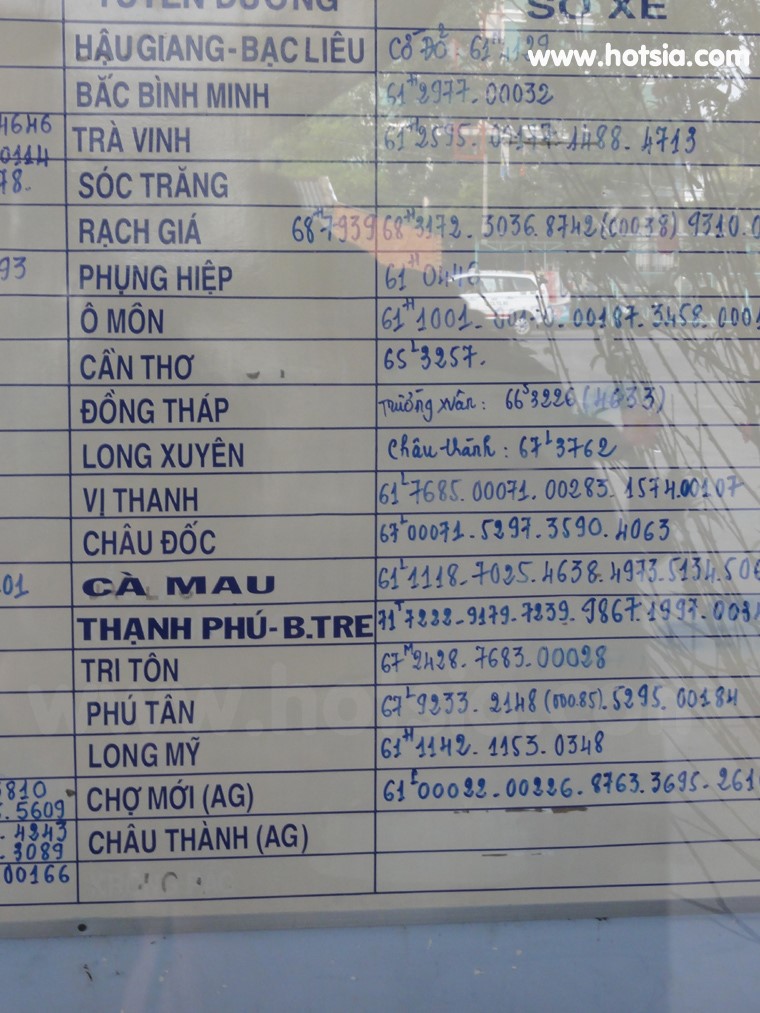 TUYẾN ĐƯỜNG SỐ XE
www.hotsia.com
HẬU GIANG - BẠC LIÊU Cờ Đỏ. 61H 4129
BẮC BÌNH MINH 61H 2977. 00032
4646
TRÀ VINH 61H 2595. 00177. 1488. 4713
0114
78. SÓC TRĂNG
RẠCH GIÁ 68H 7939 68H 3172. 3036. 8742 (00038) 9310.
93 PHỤNG HIỆP 61H 0446
Ô MÔN 61H 1001. 00187. 3458.
CẦN THƠ 65L 3257.
ĐỒNG THÁP Trường Xuân: 66S 3226 (4633)
LONG XUYÊN Châu thành: 67L 3762
VỊ THANH 61L 7685. 00071. 00283. 1574. 00107
CHÂU ĐỐC 67L 00071. 5297. 3590. 4063
01 CÀ MAU 61L 1118. 7025. 4638. 4973. 5134. 506
THẠNH PHÚ - B.TRE 71T 7222. 9179. 7239. 9867. 1997.
TRI TÔN 67M 2428. 7683. 00028
PHÚ TÂN 67L 9233. 2148 (00085). 5295. 00184
www.hotsia.com
LONG MỸ 61H 1142. 1153. 0348
3810
5609 CHỢ MỚI (AG) 61L 00022. 00226. 8763. 3695. 261
4243
3089 CHÂU THÀNH (AG)
00166